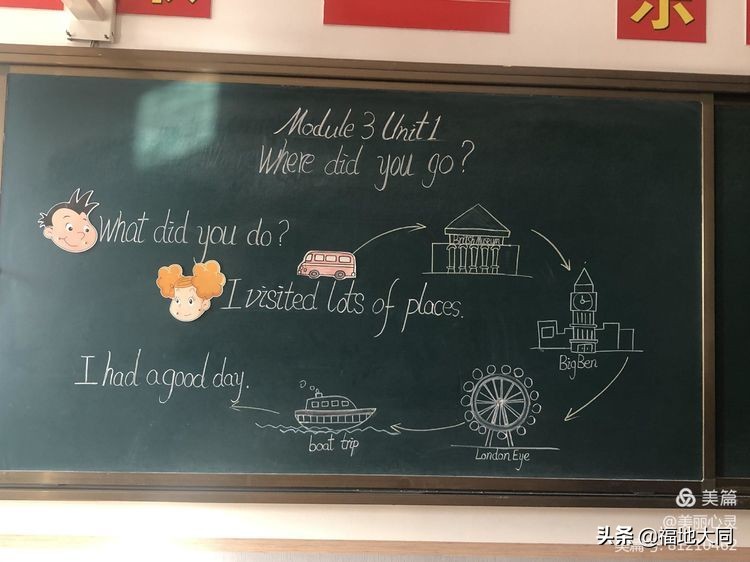 示
Module 3 Unit 1
Where did you go?
What did you do?
British Museum
I visited lots of places.
Big Ben
I had a good day.
boat trip
London Eye
美篇
@美丽心灵
头条 @福地大同
美篇号: 81210482